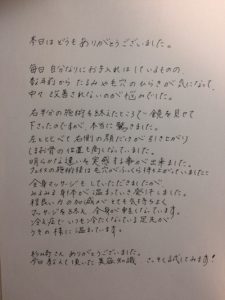 本日はどうもありがとうございました。
毎日自分なりにお手入れはしているものの
数年前からたるみや毛穴のひらきが気になって、
中々改善されないのが悩みでした。
右半分の施術を終えたところで一度鏡を見せて
下さったのですが、本当に驚きました。
左とくらべて右側の顔だけが引き上がり
ほお骨の位置も高くなっていました。
明らかな違いを実感する事が出来ました。
フェイスの施術後は毛穴がふっくら持ち上がっていましたし
全身マッサージもしていただきましたが
みるみる身体が温まっていき発汗しました。
程良い力の加減がとても気持ちよく
マッサージを終え、全身が軽くなっています。
冷え症でいつも冷たくなっている足先が
うその様に温まっています。
さん ありがとうございました。
今日教えて頂いた美容知識 さっそく試してみます!